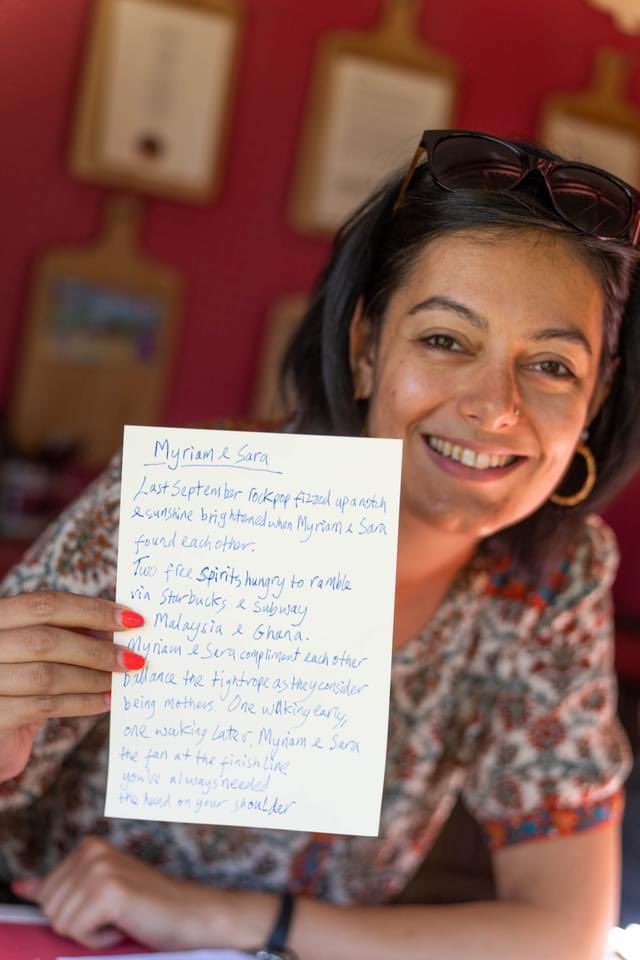 Myriam & Sara
Last September rockpop fizzed up a notch
& sunshine brightened when Myriam & Sara
found each other.
Two free spirits hungry to ramble
via Starbucks & Subway
Malaysia & Ghana.
Myriam & Sara compliment each other
ballance the tightrope as they consider
being mothers. One waking early,
one waking later, Myriam & Sara
the fan at the finish line
you've always needed
the hand on your shoulder